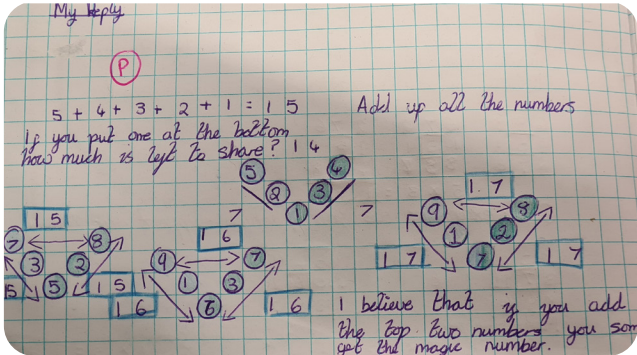 My Reply
P
5 + 4 + 3 + 2 + 1 = 1 5
Add up all the numbers
If you put one at the bottom
how much is left to share? 1 4
5 4
2 3
1
7 7
1 5
7 8
3 2
5
15 1 5
1 6
9 7
1 3
6
1 6 1 6
1 7
9 8
1 2
7
1 7 1 7
I believe that if you add
the top two numbers you som
get the magic number.